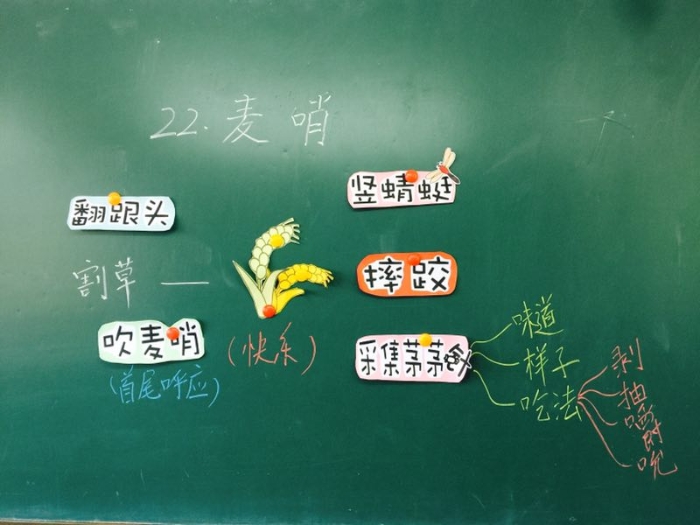 22.麦哨
翻跟头
竖蜻蜓
割草 —
摔跤
吹麦哨
(快乐)
(首尾呼应)
采集茅茅
味道
样子
吃法
剥
抽
嚼
吮